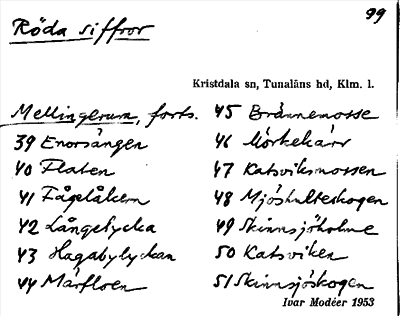 Röda siffror
99
Kristdala sn, Tunaläns hd, Klm. l.
Mellingerum, forts.
39 Enorsängen
40 Flaten
41 Fågelåkern
42 Långelycka
43 Hagabylyckan
44 Mårfloen
45 Brännemosse
46 Mörkekärr
47 Katsviksmossen
48 Mjöshulteskogen
49 Skinnsjöholme
50 Katsviken
51 Skinnsjöskogen
Ivar Modéer 1953